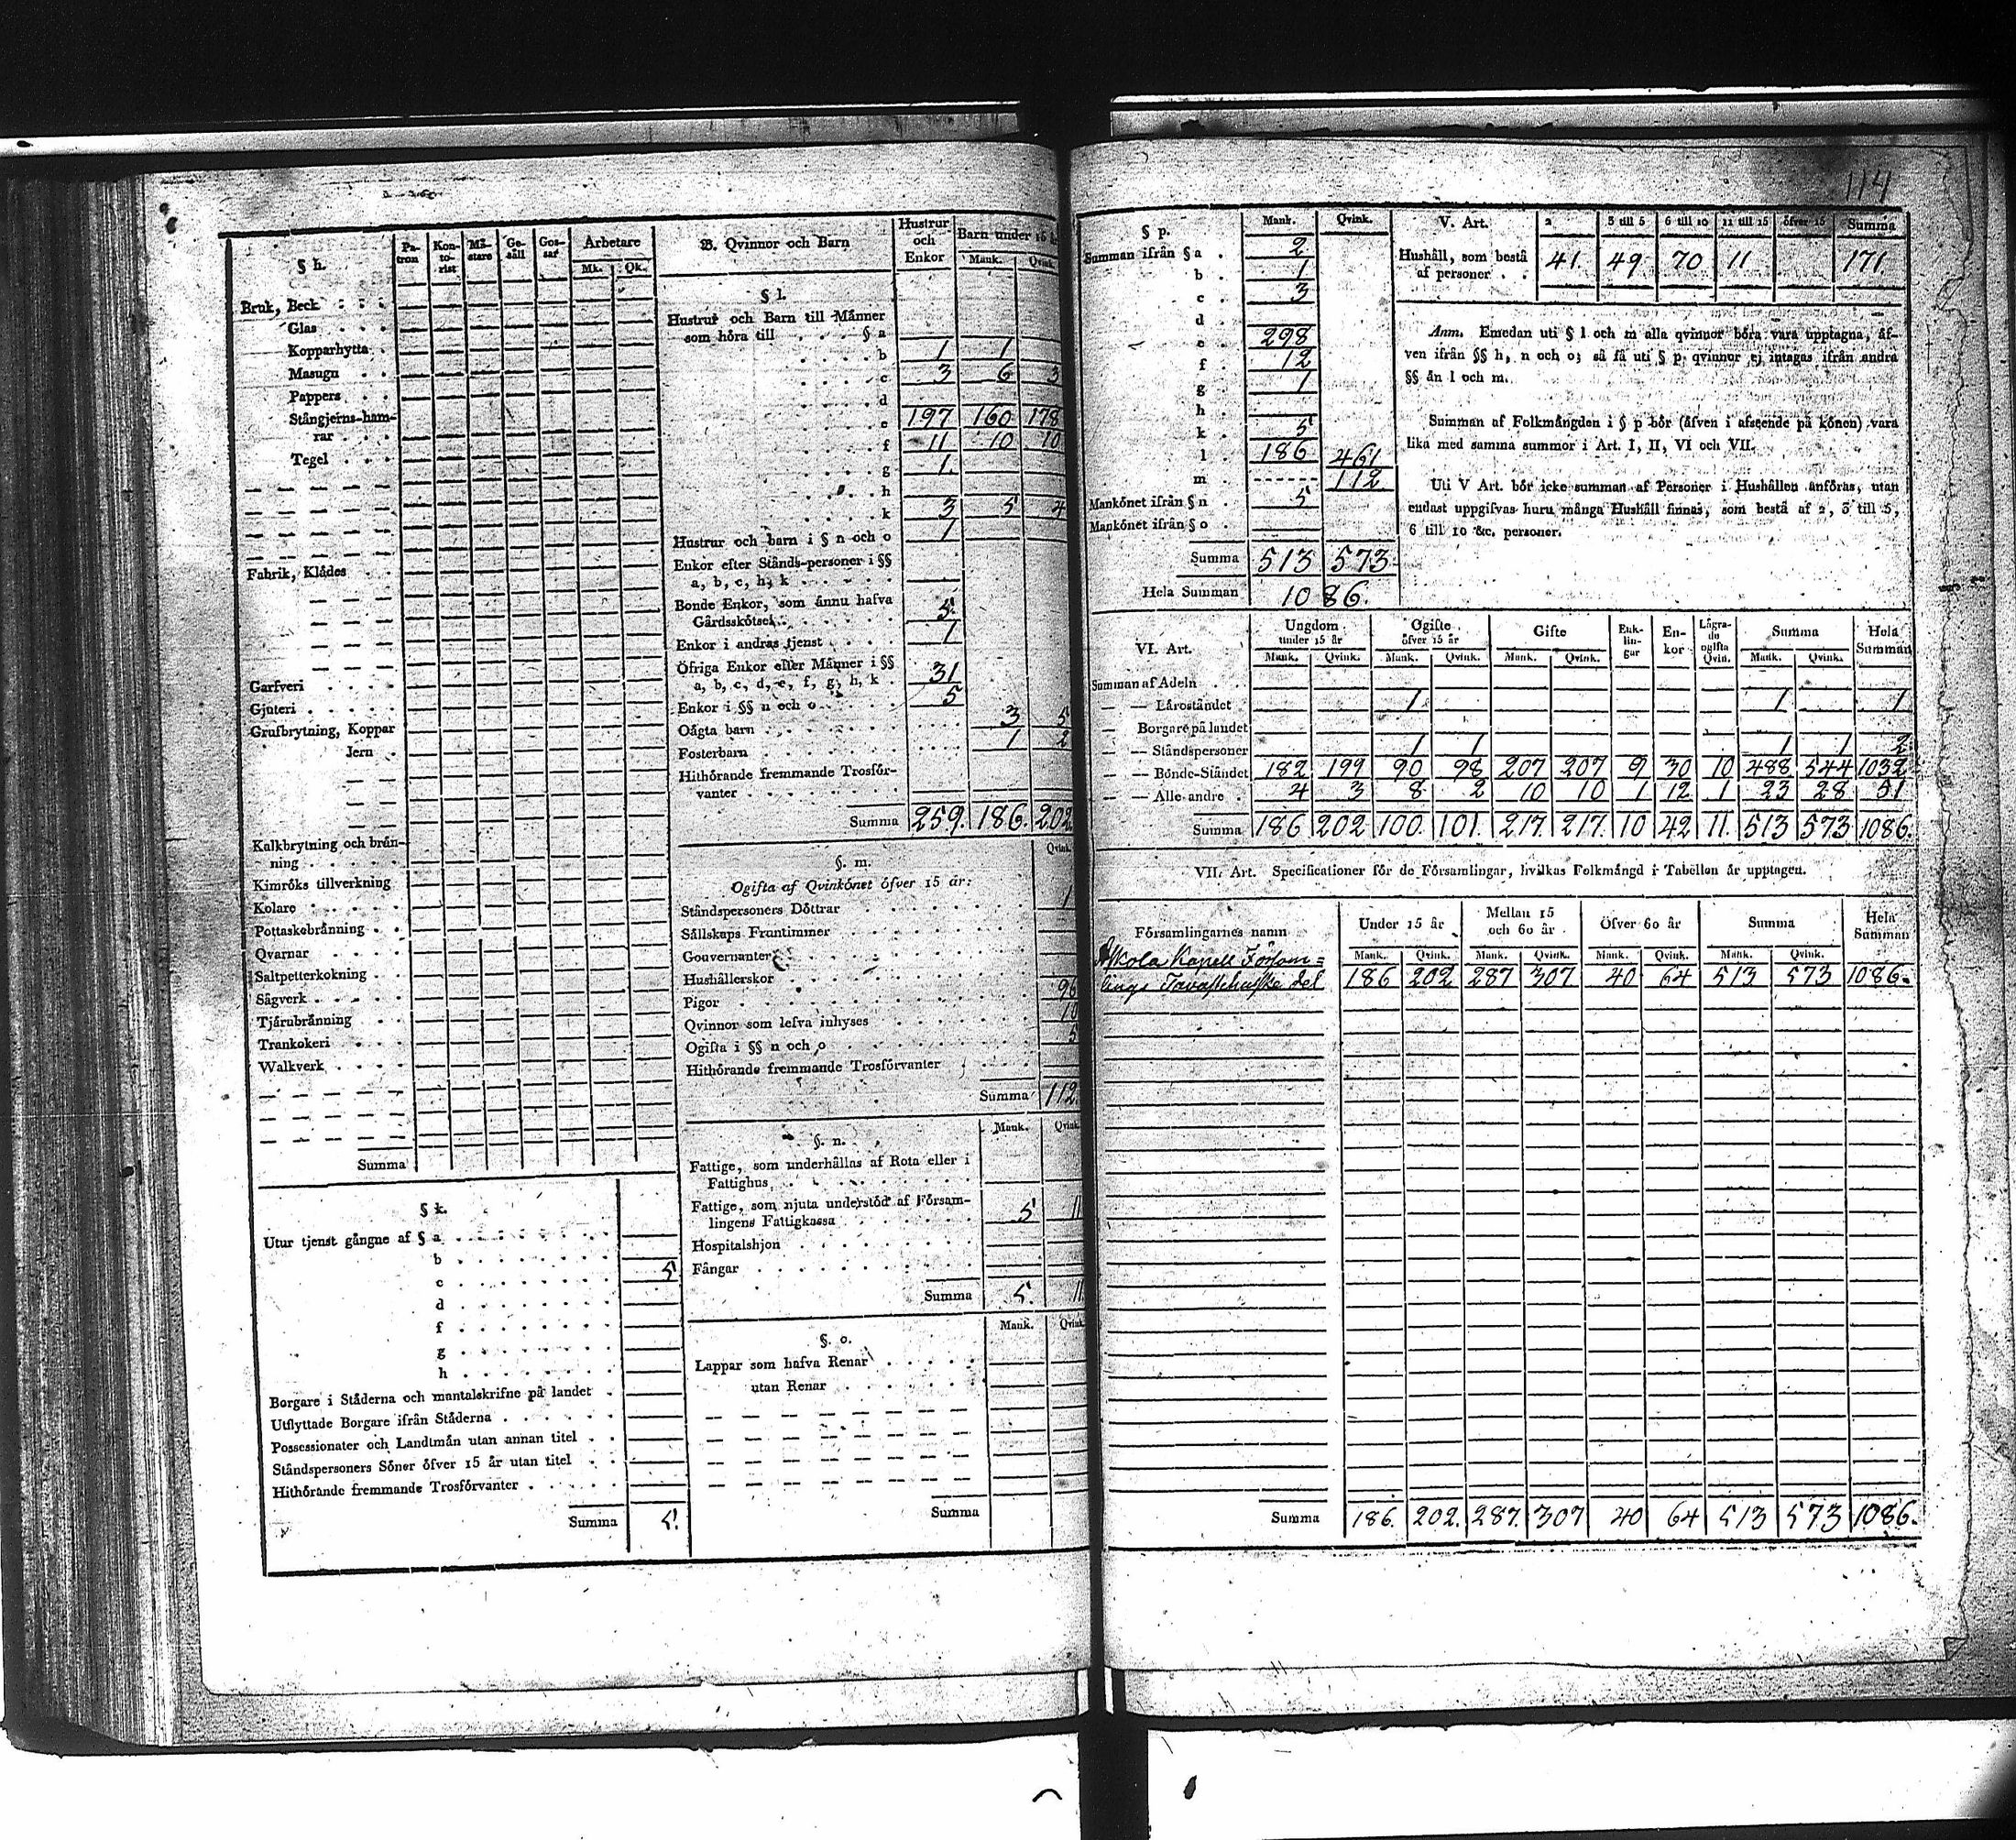 114
§ h.
Pa-tron Kon-to-rist Mä-stare Ge-säll Gos-sar Arbetare
Mk. Qk.
Bruk, Beck
Glas
Kopparhytta
Masugn
Pappers
Stångjerns-ham-
rar
Tegel
Fabrik, Klådes
Garfveri
Gjuteri
Grufbrytning, Koppar
Jern
Kalkbrytning och brån-
ning
Kimröks tillverkning
Kolare
Pottaskebrånning
Qvarnar
Saltpetterkokning
Sågverk
Tjärubrånning
Trankokeri
Walkverk
Summa
§ k.
Utur tjenst gångne af § a
b
c 5
d
f
g
h
Borgare i Ståderna och mantalskrifne på landet
Utflyttade Borgare ifrån Ståderna
Possessionater och Landtmån utan annan titel
Ståndspersoners Söner öfver 15 år utan titel
Hithörande fremmande Trosförvanter
Summa 5.
B. Qvinnor och Barn Hustrur och Enkor Barn under 15 år
Mank. Qvink.
§ l.
Hustrur och Barn till Månner
som höra till § a
b 1 1
c 3 6 3
d
e 197 160 178
f 11 10 10
g 1
h
k 3 5 4
Hustrur och barn i § n och o 1
Enkor efter Stånds-personer i §§
a, b, c, h, k
Bonde Enkor, som ånnu hafva
Gårdsskötsel 5.
Enkor i andras tjenst 1
Öfriga Enkor efter Månner i §§
a, b, c, d, e, f, g, h, k 31
Enkor i §§ n och o 5
Oågta barn 3 5
Fosterbarn 1 2
Hithörande fremmande Trosför-
vanter
Summa 259. 186. 202
§. m.
Qvink.
Ogifta af Qvinkönet öfver 15 år:
Ståndspersoners Döttrar 1
Sållskaps Fruntimmer
Gouvernanter
Hushållerskor
Pigor 96
Qvinnor som lefva inhyses 10
Ogifta i §§ n och o 5
Hithörande fremmande Trosförvanter
Summa 112.
§. n. Mank. Qvink.
Fattige, som underhållas af Rota eller i
Fattighus
Fattige, som njuta understöd af Försam-
lingens Fattigkassa 5 11
Hospitalshjon
Fångar
Summa 5. 11
§. o. Mank. Qvink.
Lappar som hafva Renar
utan Renar
Summa
§ p. Mank. Qvink.
Summan ifrån § a 2
b 1
c 3
d
e 298
f 12
g 1
h
k 5
l 186 461
m 112
Mankönet ifrån § n 5
Mankönet ifrån § o
Summa 513 573
Hela Summan 1086.
V. Art. 2 3 till 5 6 till 10 11 till 15 öfver 15 Summa
Hushåll, som bestå
af personer 41. 49 70 11 171
Anm. Emedan uti § l och m alla qvinnor böra vara upptagna, åf-
ven ifrån §§ h, n och o; så få uti § p. qvinnor ej intagas ifrån andra
§§ ån l och m.
Summan af Folkmångden i § p bör (åfven i afseende på könen) vara
lika med samma summor i Art. I, II, VI och VII.
Uti V Art. bör icke summan af Personer i Hushållen anföras, utan
endast uppgifvas huru många Hushåll finnas, som bestå af 2, 3 till 5,
6 till 10 &c. personer.
VI. Art. Ungdom under 15 år Ogifte öfver 15 år Gifte Enk-lin-gar En-kor Lågra-de ogifta Qvin. Summa Hela Summan
Mank. Qvink. Mank. Qvink. Mank. Qvink. Mank. Qvink.
Summan af Adeln
— — Låroståndet 1 1 1
— Borgare på landet
— — Ståndspersoner 1 1 1 1 2
— — Bonde-Ståndet 182 199 90 98 207 207 9 30 10 488 544 1032
— — Alle andre 4 3 8 2 10 10 1 12 1 23 28 51
Summa 186 202 100. 101. 217. 217. 10 42 11. 513 573 1086.
VII. Art. Specificationer för de Församlingar, hvilkas Folkmångd i Tabellen år upptagen.
Församlingarnes namn Under 15 år Mellan 15 och 60 år Öfver 60 år Summa Hela Summan
Mank. Qvink. Mank. Qvink. Mank. Qvink. Mank. Qvink.
Kapell Försam=
lings Tavastehuske del 186 202 287 307 40 64 513 573 1086.
Summa 186. 202. 287. 307 40 64 513 573 1086.